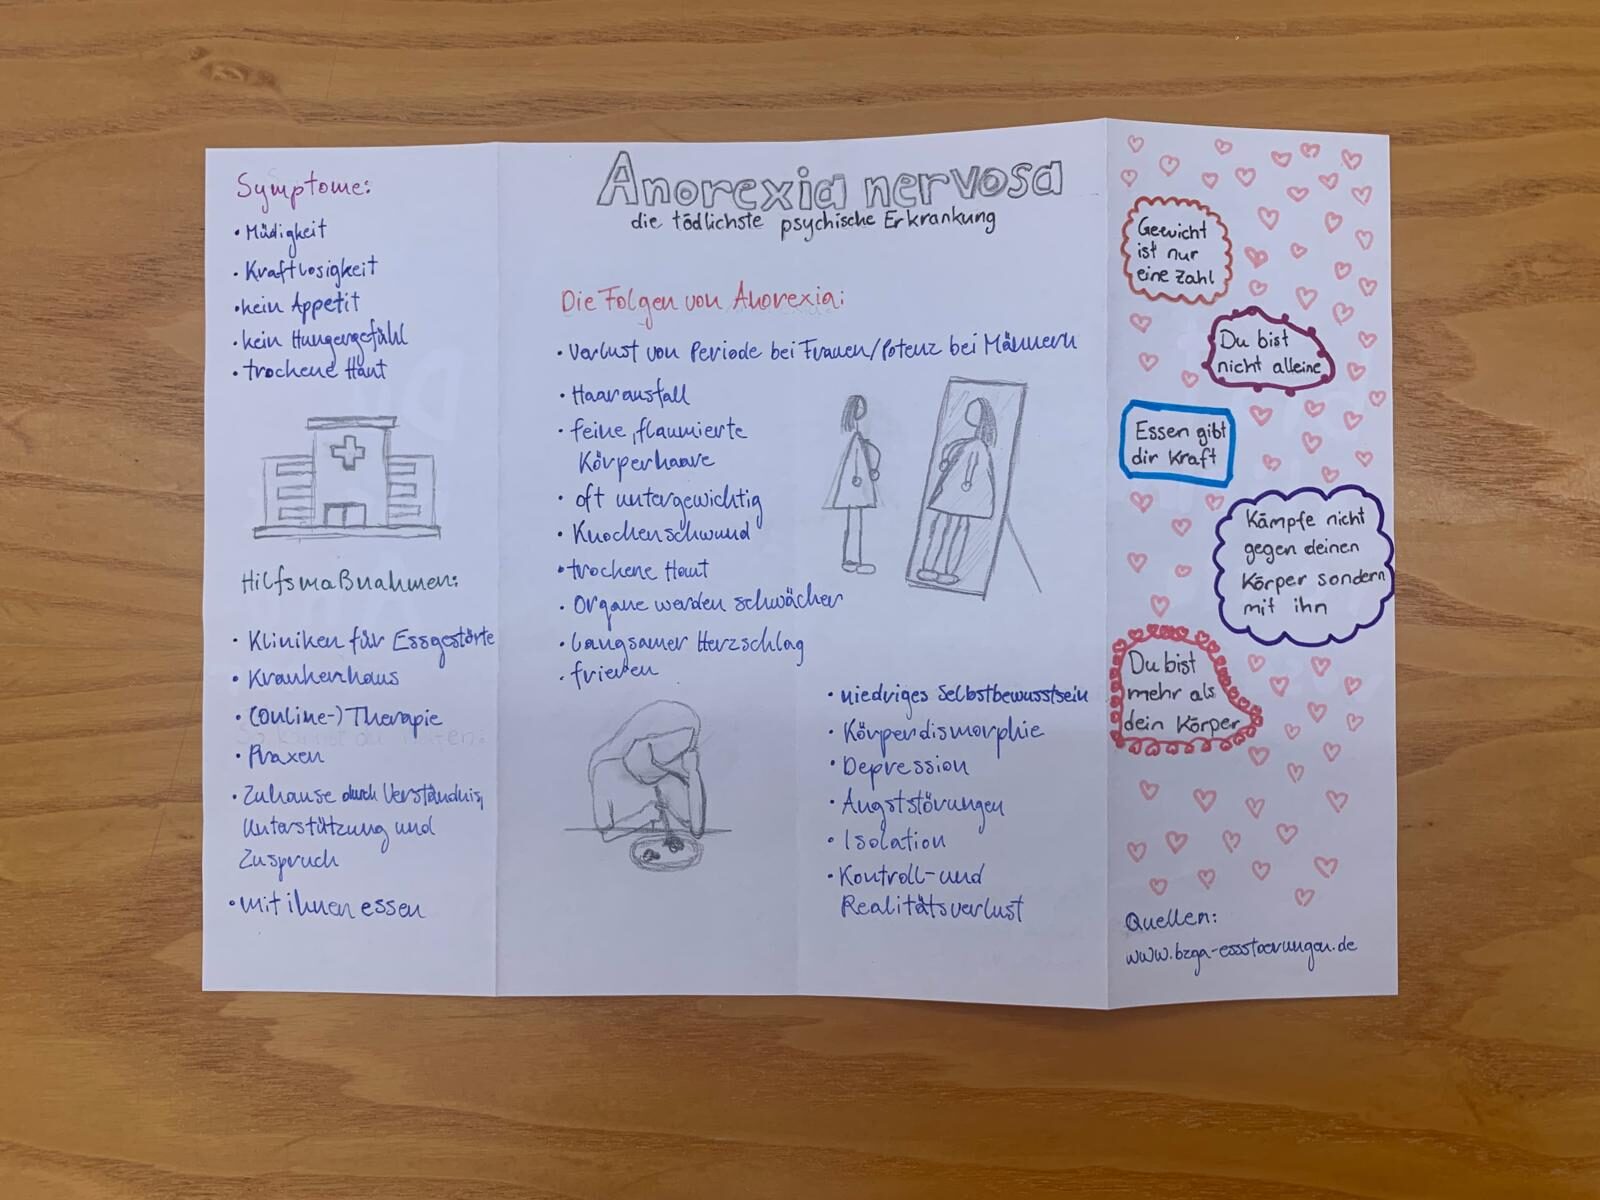 Symptome:
• Müdigkeit
• Kraftlosigkeit
• kein Appetit
• kein Hungergefühl
• trockene Haut
Hilfsmaßnahmen:
• Kliniken für Essgestörte
• Krankenhaus
• (Online-) Therapie
• Praxen
• Zuhause durch Verständnis,
Unterstützung und
Zuspruch
• mit ihnen essen
Anorexia nervosa
die tödlichste psychische Erkrankung
Die Folgen von Anorexia:
• Verlust von Periode bei Frauen/Potenz bei Männern
• Haarausfall
• feine, flaumierte
Körperhaare
• oft untergewichtig
• Knochenschwund
• trockene Haut
• Organe werden schwächer
• Langsamer Herzschlag
• frieren
• niedriges Selbstbewusstsein
• Körperdismorphie
• Depression
• Angststörungen
• Isolation
• Kontroll- und
Realitätsverlust
Gewicht
ist nur
eine Zahl
Du bist
nicht alleine
Essen gibt
dir Kraft
Kämpfe nicht
gegen deinen
Körper sondern
mit ihn
Du bist
mehr als
dein Körper
Quellen:
www.bzga-essstoerungen.de